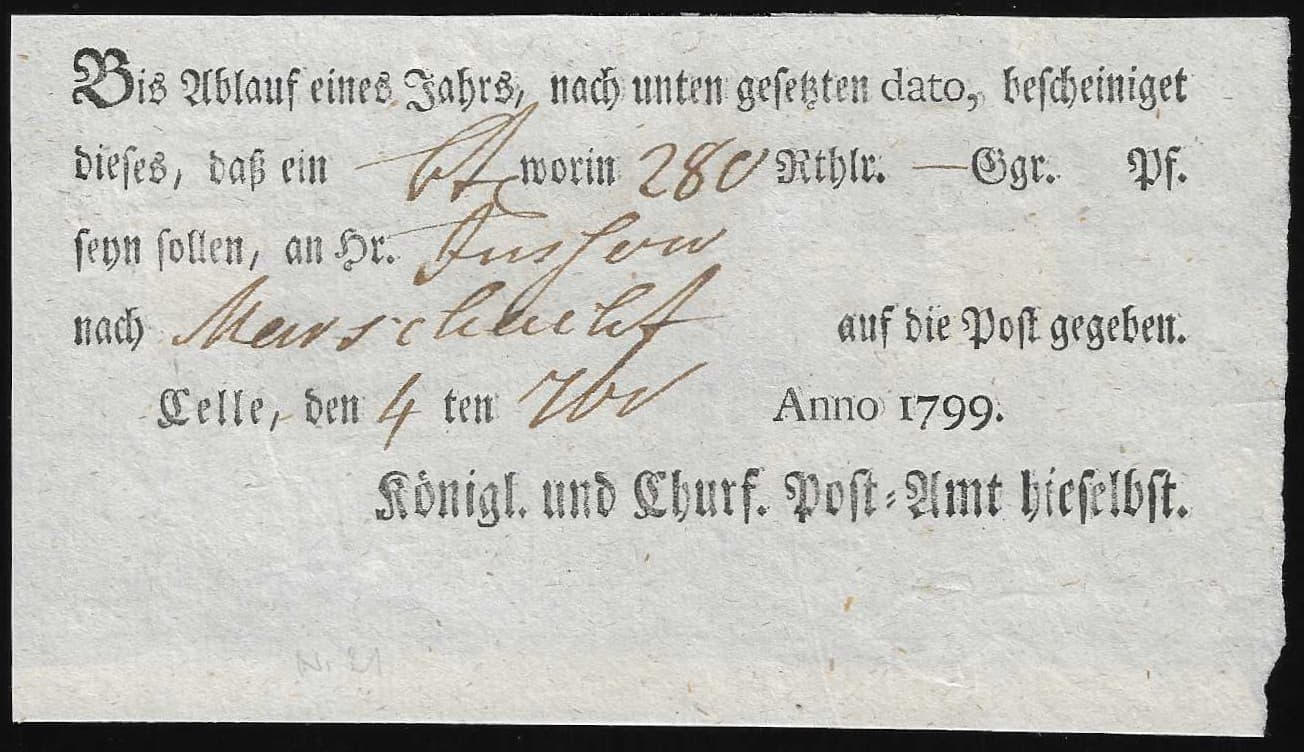 Bis Ablauf eines Jahrs, nach unten gesetzten dato, bescheiniget
dieses, daß ein worin 280 Rthlr. — Ggr. Pf.
seyn sollen, an Hr.
nach Marschacht auf die Post gegeben.
Celle, den 4 ten 7br Anno 1799.
Königl. und Churf. Post-Amt hieselbst.